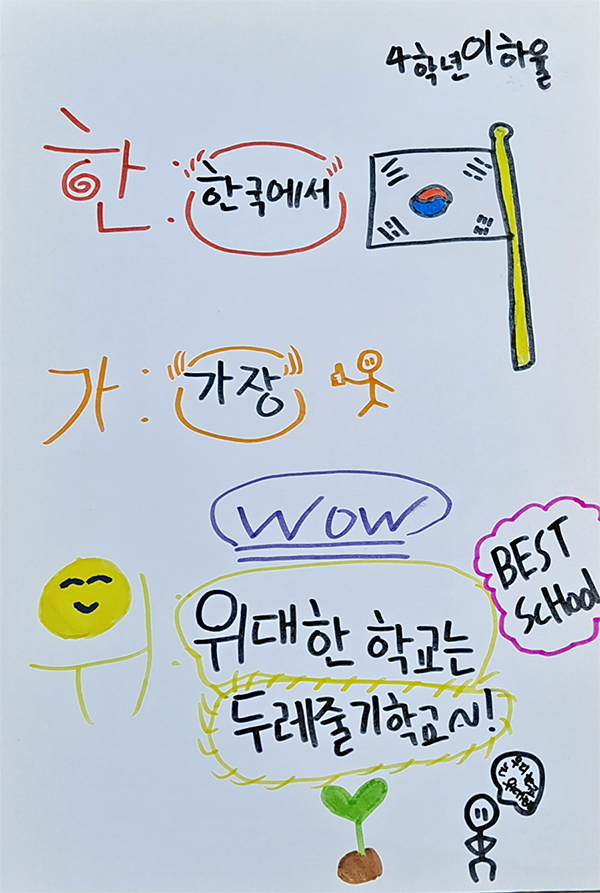 4학년 이하율
한 : 한국에서
가 : 가장
WOW
위 : 위대한 학교는
두레줄기학교~!
BEST
SCHOOL